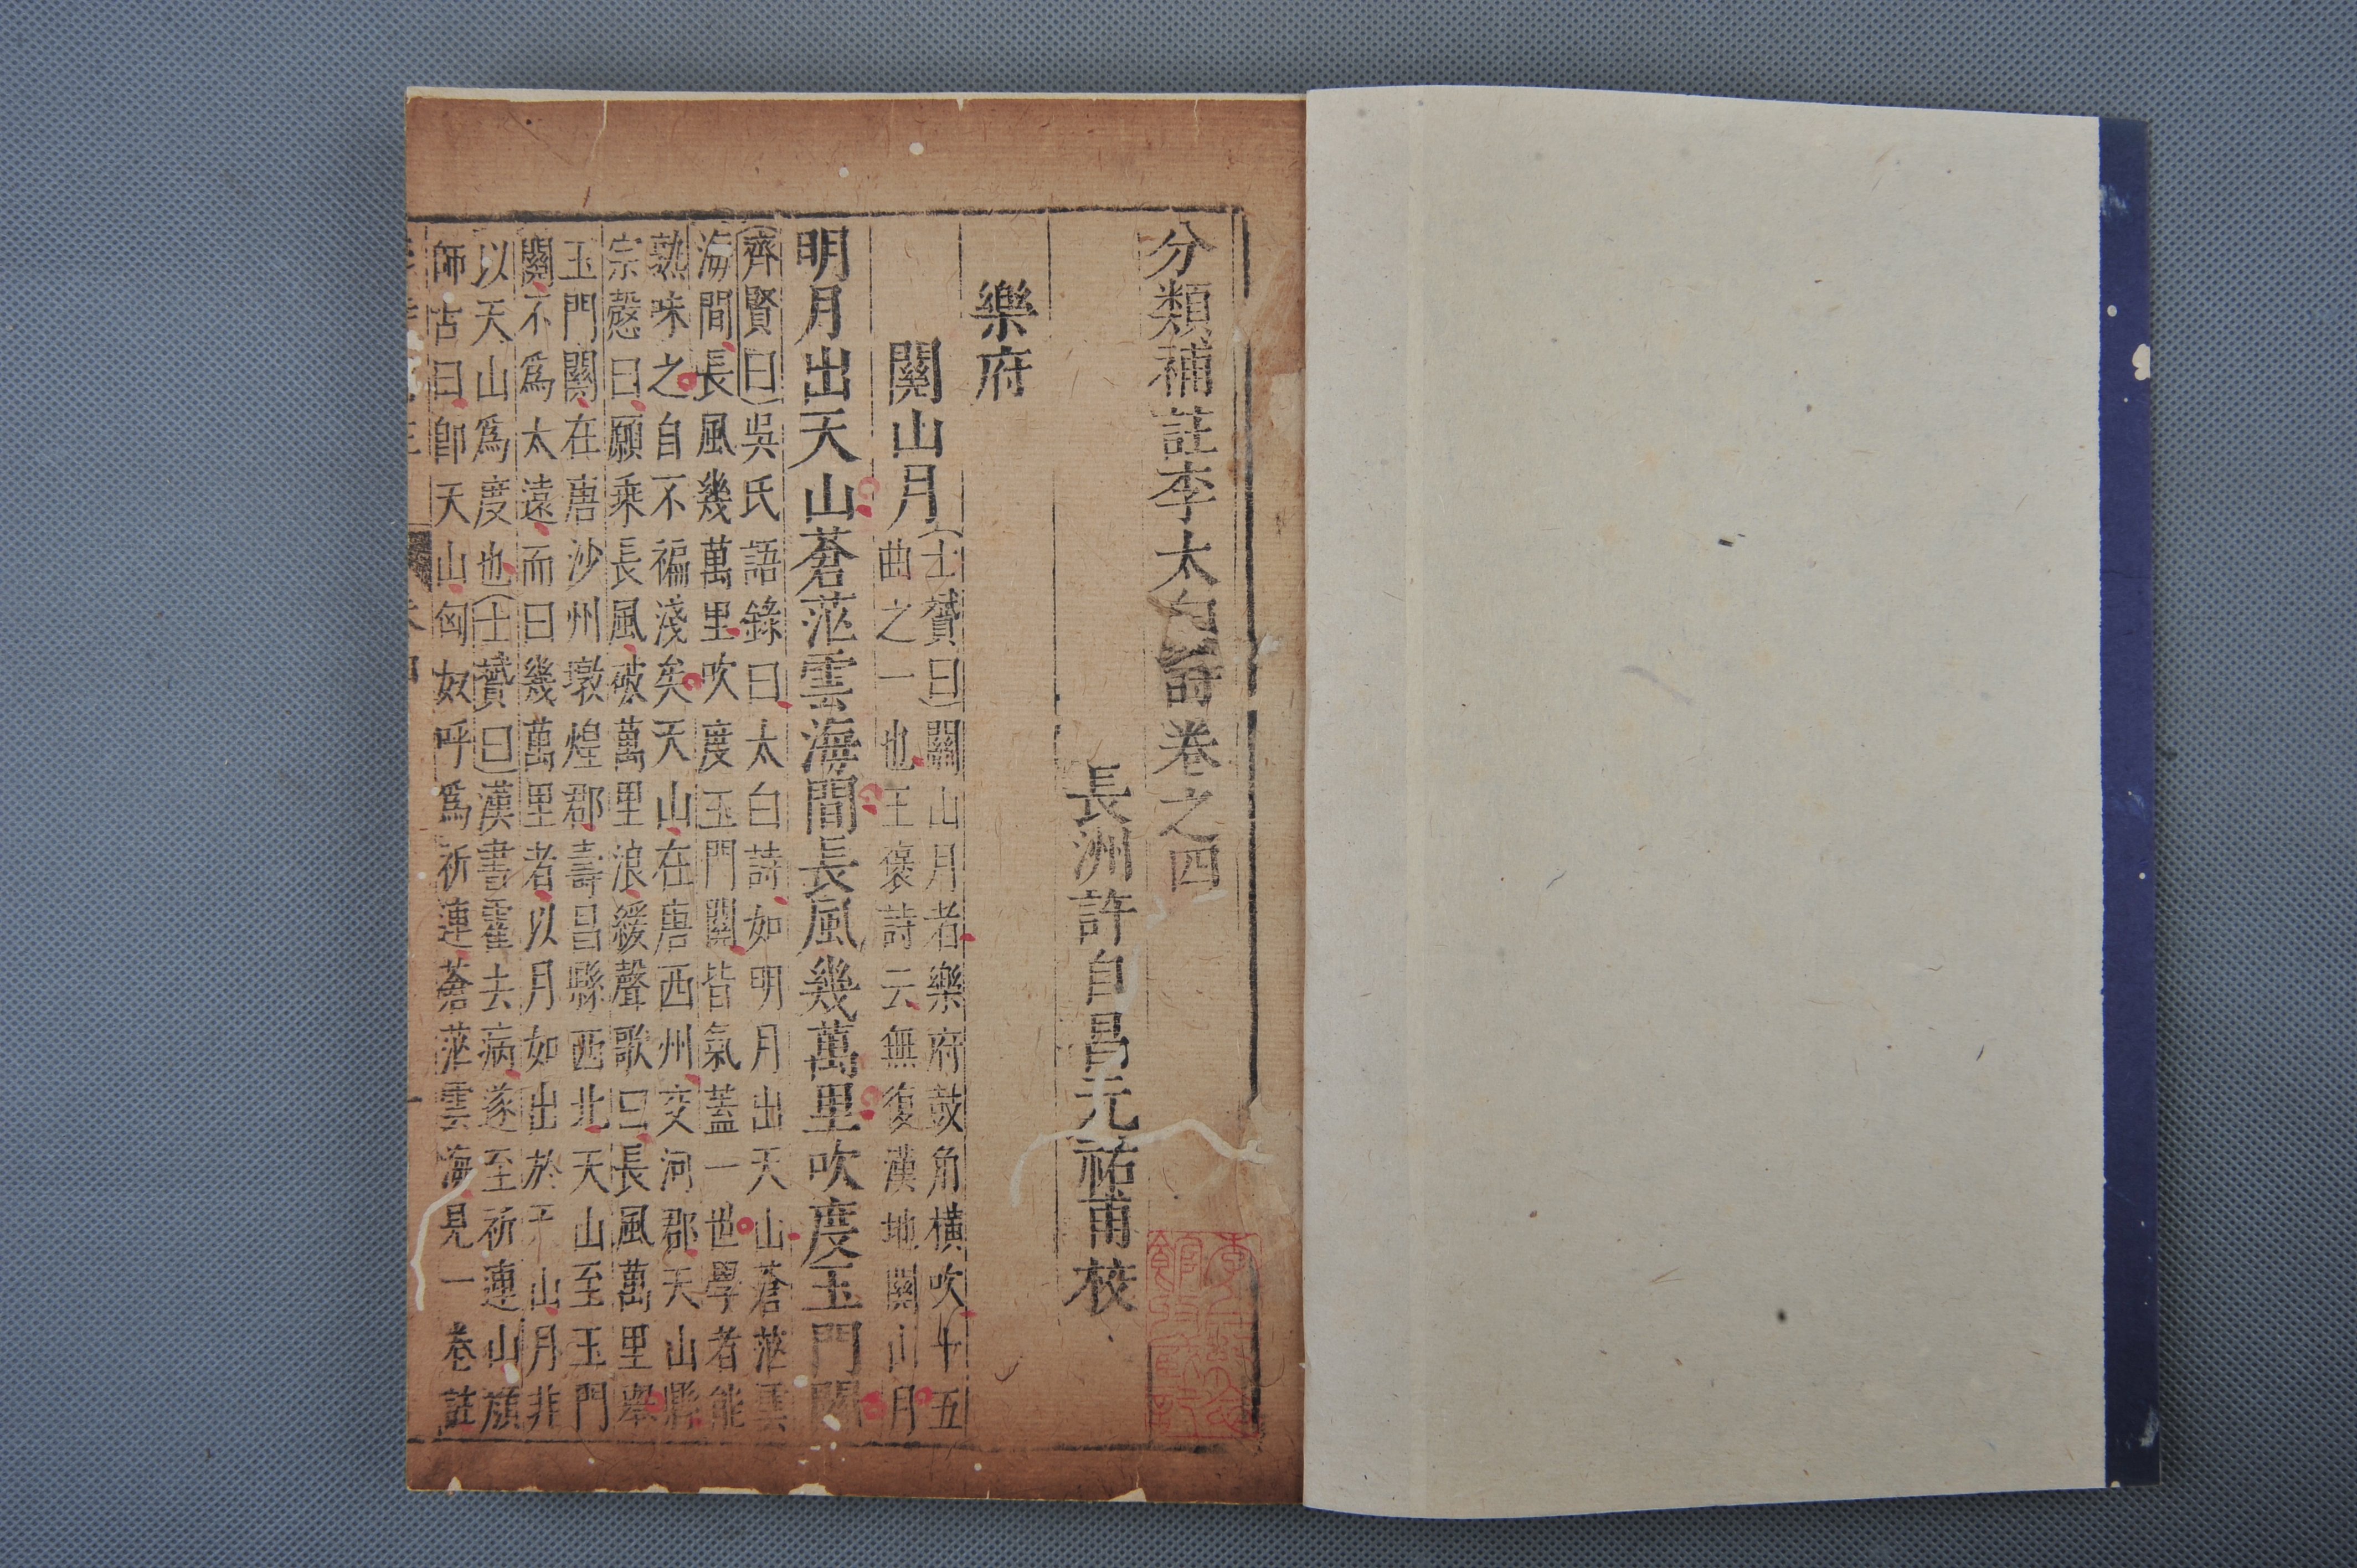 分類補註李太白詩卷之四
長洲許自昌玄祐甫校
樂府
關山月
士贇曰關山月者樂府鼓角橫吹十五
曲之一也王褒詩云無復漢地關山月
明月出天山蒼茫雲海間長風幾萬里吹度玉門關
齊賢曰吳氏語錄曰太白詩如明月出天山蒼茫雲
海間長風幾萬里吹度玉門關皆氣蓋一世學者能
熟味之自不褊淺矣天山在唐西州交河郡天山縣
宗愨曰願乘長風破萬里浪緩聲歌曰長風萬里舉
玉門關在唐沙州燉煌郡壽昌縣西北天山至玉門
關不爲太遠而曰幾萬里者以月如出於天山月非
以天山爲度也士贇曰漢書霍去病遂至祈連山顔
師古曰卽天山匈奴呼爲祈連蒼茫雲海見一卷註